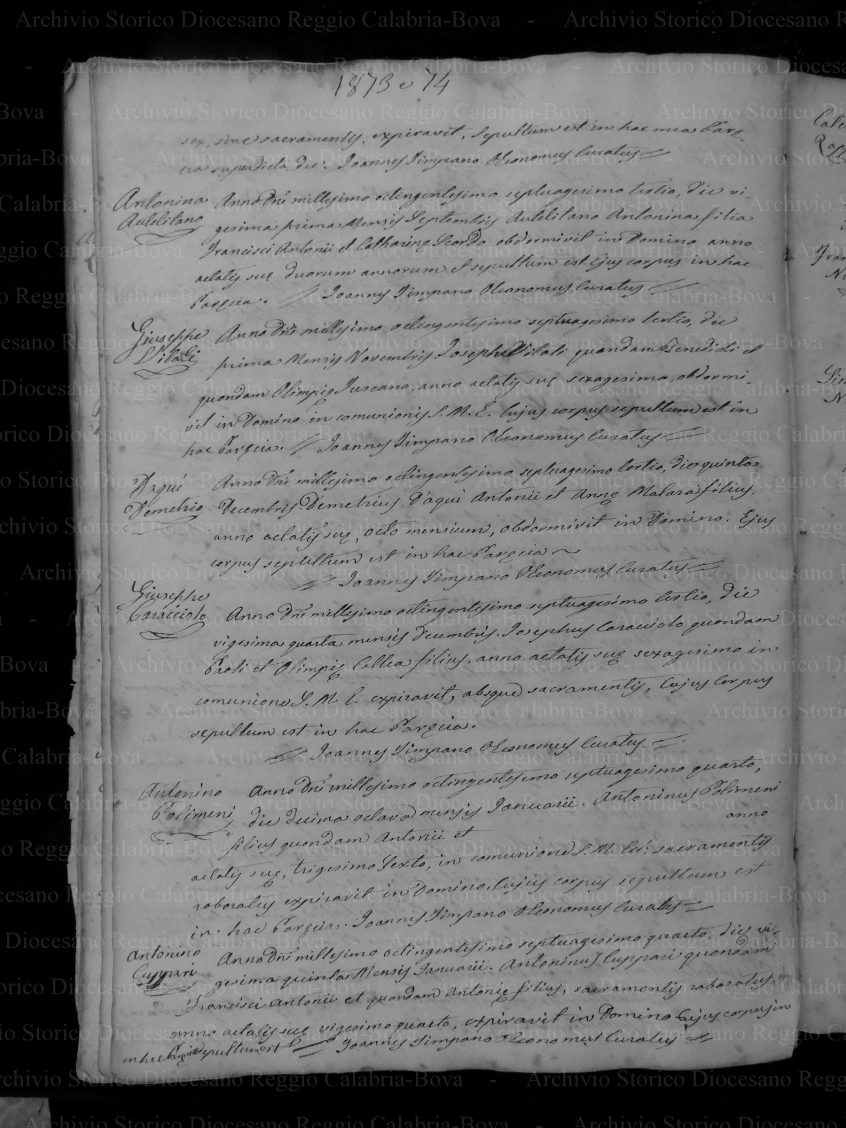 1873 e 74
sex, sine sacramentis, expiravit, sepultum est in hac mea Parę-
cia supradicta die. Joannes Timpano Œconomus Curatus
Antonina
Autelitano
Anno Dñi millesimo octingentesimo septuagesimo tertio, die vi-
gesima prima Mensis Septembris Autelitano Antonina filia
Francisci Antonii et Catharinę Scordo obdormivit in Domino anno
aetatis suę duorum annorum et sepultum est ejus corpus in hac
Paręcia. Joannes Timpano Œconomus Curatus
Giuseppe
Vitali
Anno Dñi millesimo octingentesimo septuagesimo tertio, die
prima Mensis Novembris Joseph Vitali quondam Benedicti et
quondam Olimpię Tuscano, anno aetatis suę sexagesimo, obdormi-
vit in Domino in comunionis S. M. E. Cujus corpus sepultum est in
hac Paręcia. Joannes Timpano Œconomus Curatus
D'aqui
Demetrio
Anno Dñi millesimo octingentesimo septuagesimo tertio, die quinta
Decembris Demetrius D'aqui Antonii et Annę Malara filius,
anno aetatis suę, octo mensium, obdormivit in Domino. Ejus
corpus sepultum est in hac Paręcia
Joannes Timpano Œconomus Curatus
Giuseppe
Caracciolo
Anno Dñi millesimo octingentesimo septuagesimo tertio, die
vigesima quarta mensis Decembris. Josephus Caracciolo quondam
Paoli et Olimpię Collea filius, anno aetatis suę sexagesimo in
comunione S. M. E. expiravit, absque sacramentis, Cujus Corpus
sepultum est in hac Paręcia.
Joannes Timpano Œconomus Curatus
Antonino
Polimeni
Anno Dñi millesimo octingentesimo septuagesimo quarto,
die decima octava mensis Januarii. Antoninus Polimeni
filius quondam Antonii et anno
aetatis suę, trigesimo sexto, in comunione S. M. Eę. sacramentis
roboratus expiravit in Domino, Cujus corpus sepultum est
in hac Paręcia. Joannes Timpano Œconomus Curatus
Antonino
Cuppari
Anno Dñi millesimo octingentesimo septuagesimo quarto, die vi-
gesima quinta Mensis Januarii. Antoninus Cuppari quondam
Francisci Antonii et quondam Antonię filius, sacramentis roboratus,
anno aetatis suę vigesimo quarto, expiravit in Domino Cujus corpus in
in hac Paręcia sepultum est Joannes Timpano Œconomus Curatus